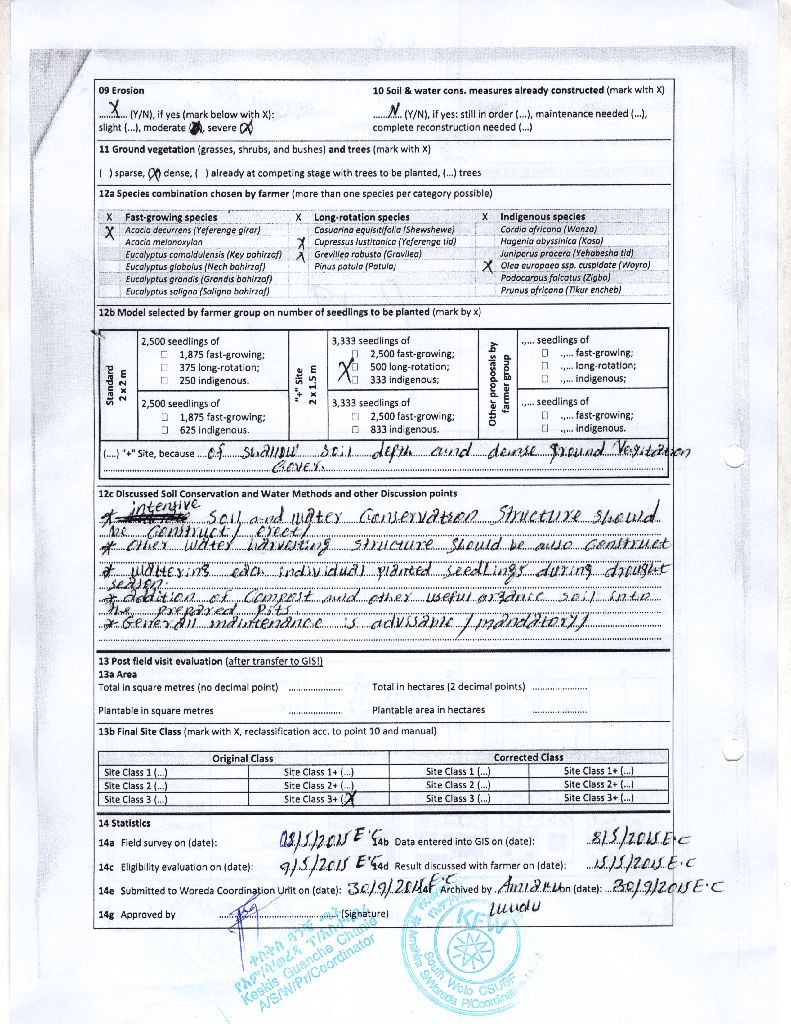 09 Erosion
10 Soil & water cons. measures already constructed (mark with X)
...X... (Y/N), if yes (mark below with X):
...N... (Y/N), if yes: still in order (...), maintenance needed (...),
slight (...), moderate, severe (X)
complete reconstruction needed (...)
11 Ground vegetation (grasses, shrubs, and bushes) and trees (mark with X)
( ) sparse, (X) dense, ( ) already at competing stage with trees to be planted, (...) trees
12a Species combination chosen by farmer (more than one species per category possible)
X Fast-growing species X Long-rotation species X Indigenous species
X Acacia decurrens (Yeferenge girar) Casuarina equisitifolia (Shewshewe) Cordia africana (Wanza)
Acacia melanoxylon X Cupressus lustitanica (Yeferenge tid) Hagenia abyssinica (Koso)
Eucalyptus camaldulensis (Key bahirzaf) X Grevillea robusta (Gravilea) Juniperus procera (Yehabesha tid)
Eucalyptus globolus (Nech bahirzaf) Pinus patula (Patula) X Olea europaea ssp. cuspidate (Woyra)
Eucalyptus grandis (Grandis bahirzaf) Podocarpus falcatus (Zigba)
Eucalyptus saligna (Saligna bahirzaf) Prunus africana (Tikur encheb)
12b Model selected by farmer group on number of seedlings to be planted (mark by x)
Standard
2 x 2 m
2,500 seedlings of
1,875 fast-growing;
375 long-rotation;
250 indigenous.
2,500 seedlings of
1,875 fast-growing;
625 indigenous.
"+" Site
2 x 1.5 m
3,333 seedlings of
2,500 fast-growing;
X 500 long-rotation;
333 indigenous;
3,333 seedlings of
2,500 fast-growing;
833 indigenous.
Other proposals by
farmer group
.,... seedlings of
.,... fast-growing;
.,... long-rotation;
.,... indigenous;
.,... seedlings of
.,... fast-growing;
.,... indigenous.
(....) "+" Site, because of shallow soil depth and dense ground Vegitation
Cover.
12c Discussed Soil Conservation and Water Methods and other Discussion points
* intensive Soil and water Conservation Structure should
be Construct / erect /
* other water harvesting structure should be also Construct
* wattering each individual planted seedlings during drought
season.
* addition of Compost and other useful organic soil into
the prepared Pits.
* Generall maintenance is advisable / mandatory /
13 Post field visit evaluation (after transfer to GIS!)
13a Area
Total in square metres (no decimal point) .................. Total in hectares (2 decimal points) ..................
Plantable in square metres .................. Plantable area in hectares ..................
13b Final Site Class (mark with X, reclassification acc. to point 10 and manual)
Original Class Corrected Class
Site Class 1 (...) Site Class 1+ (...) Site Class 1 (...) Site Class 1+ (...)
Site Class 2 (...) Site Class 2+ (...) Site Class 2 (...) Site Class 2+ (...)
Site Class 3 (...) Site Class 3+ (X) Site Class 3 (...) Site Class 3+ (...)
14 Statistics
14a Field survey on (date): 08/5/2015 E.C 14b Data entered into GIS on (date): 8/5/2015 E.C
14c Eligibility evaluation on (date): 9/5/2015 E.C 14d Result discussed with farmer on (date): 15/5/2015 E.C
14e Submitted to Woreda Coordination Unit on (date): 30/9/2015 E.C 14f Archived by on (date): 30/9/2015 E.C
14g Approved by .................. (Signature)
Keskis Guanche Chanie
A/S/W/Pr/Coordinator
KEW
South Wolo CSUBF